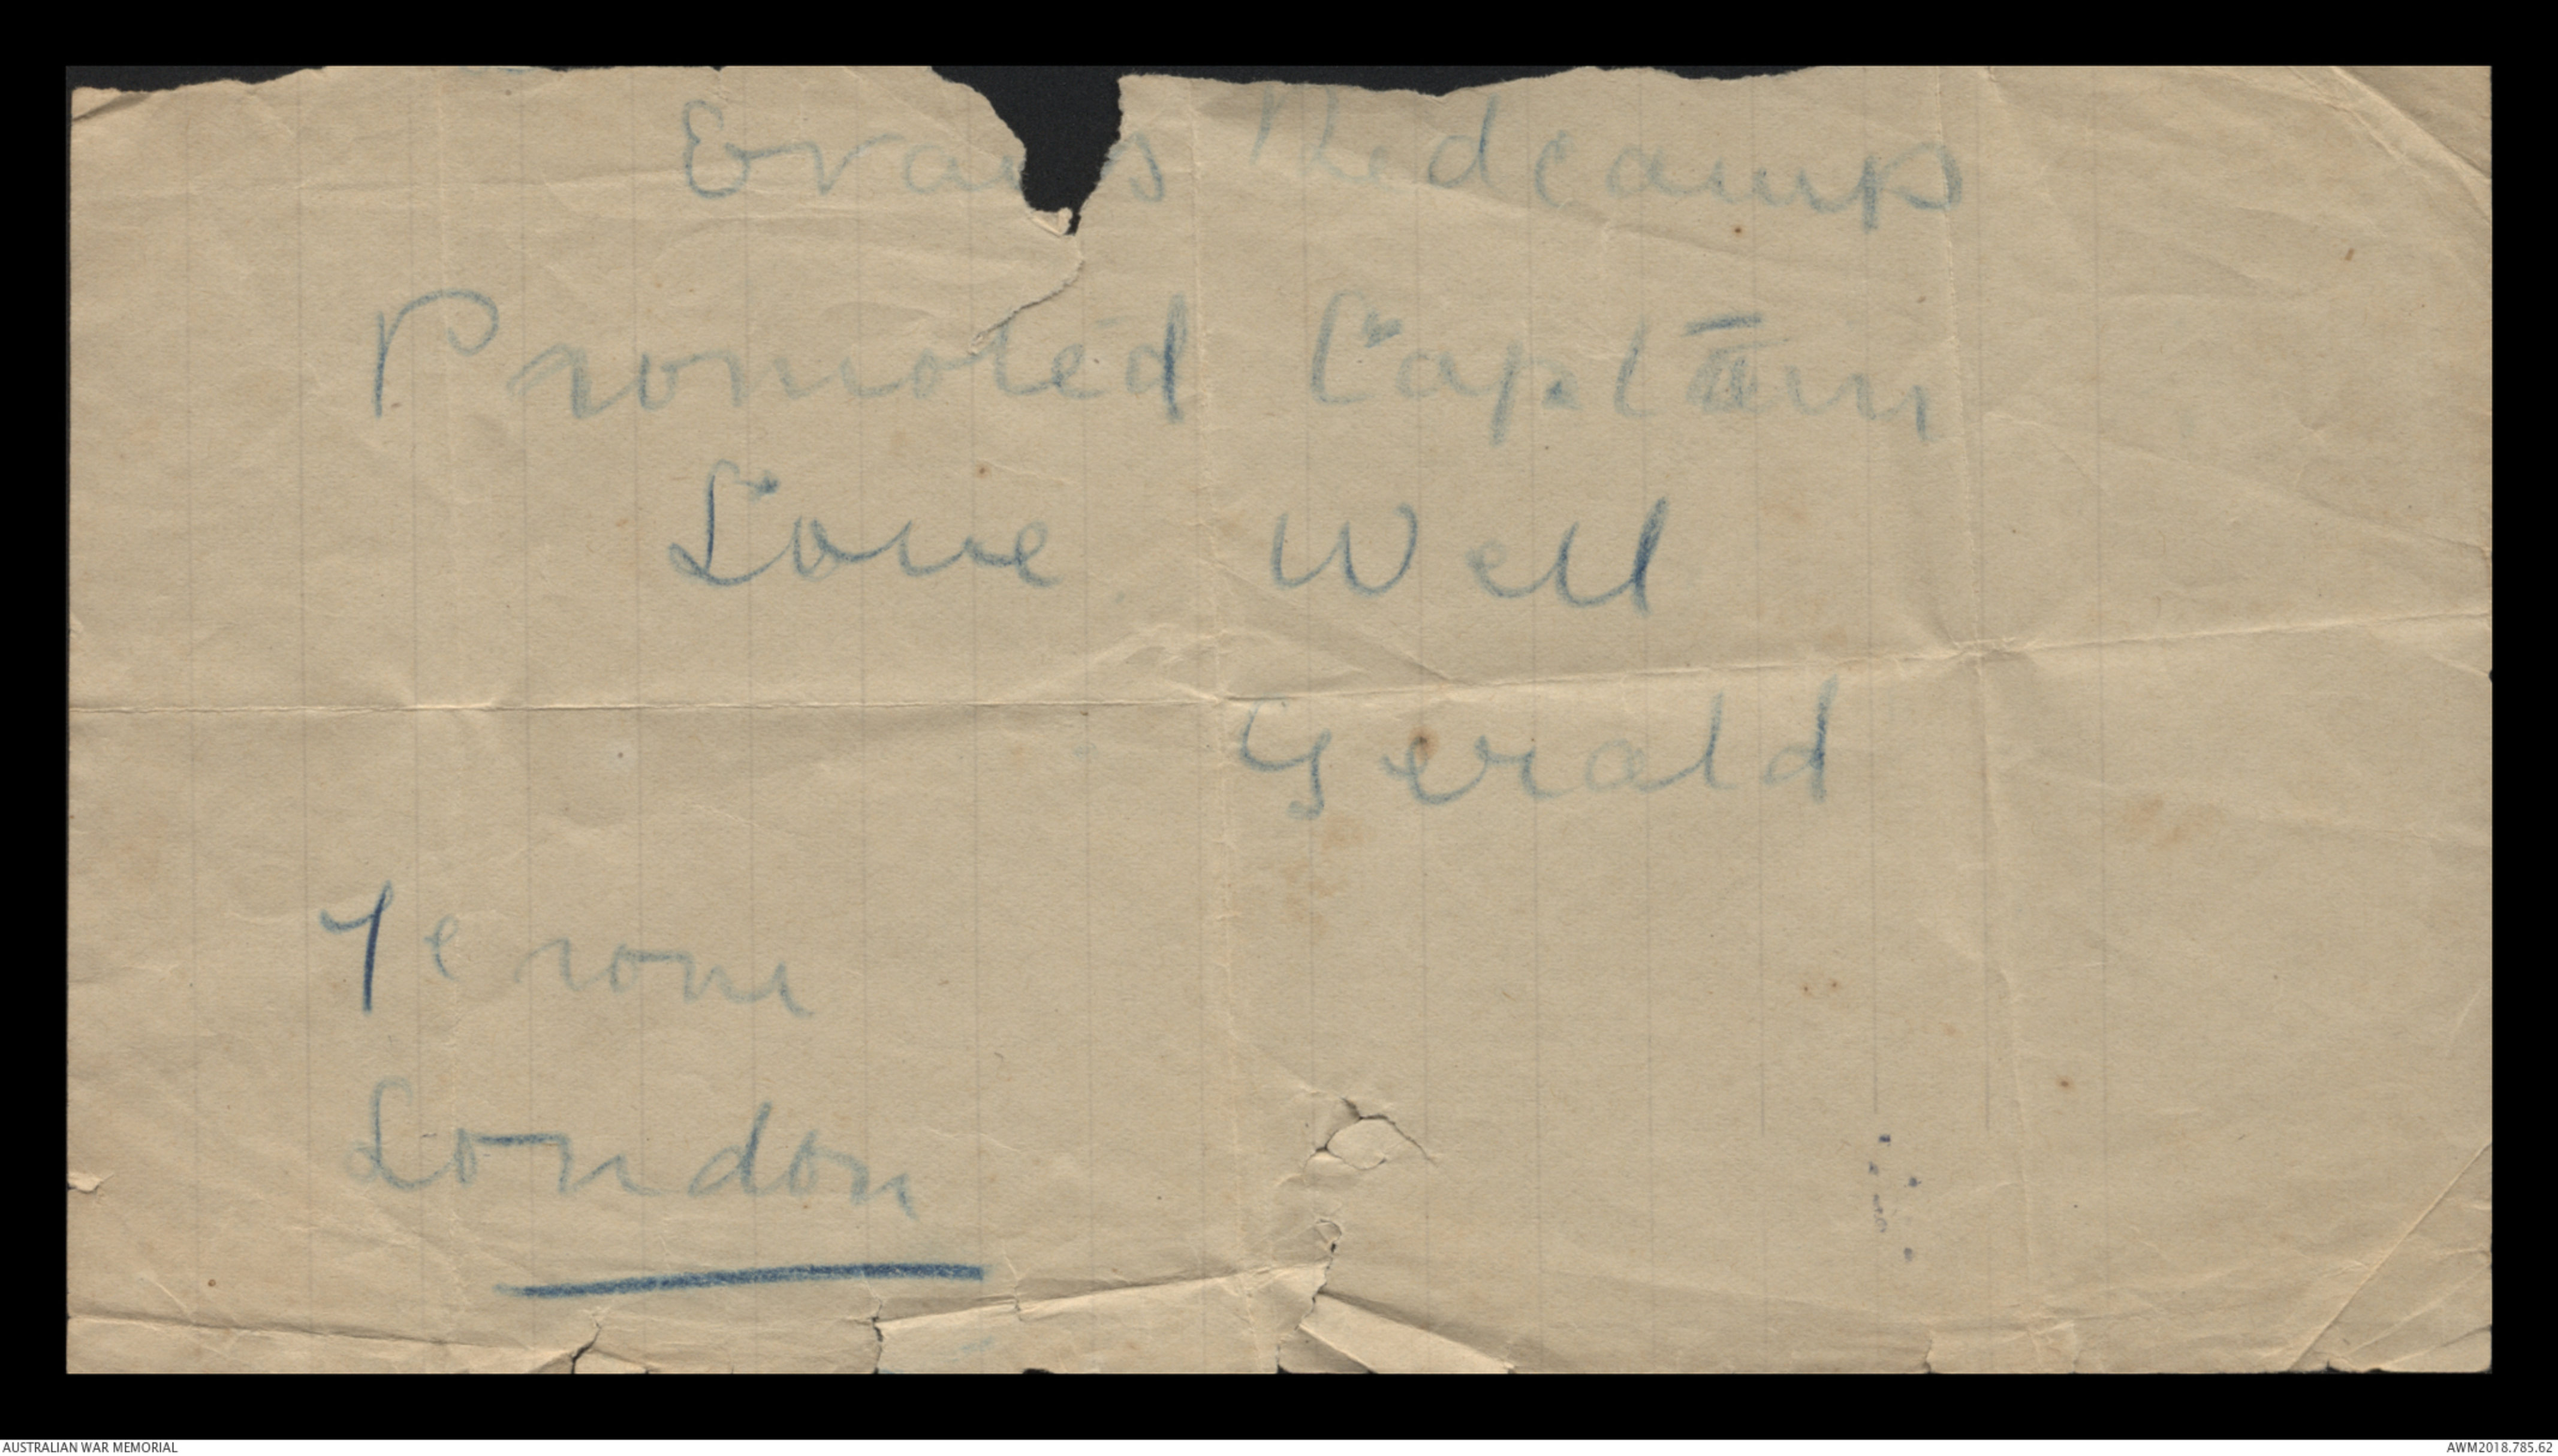 Evans Redcamp
Promoted Captain
Love Well
Gerald
From
London
AUSTRALIAN WAR MEMORIAL
AWM2018.785.62